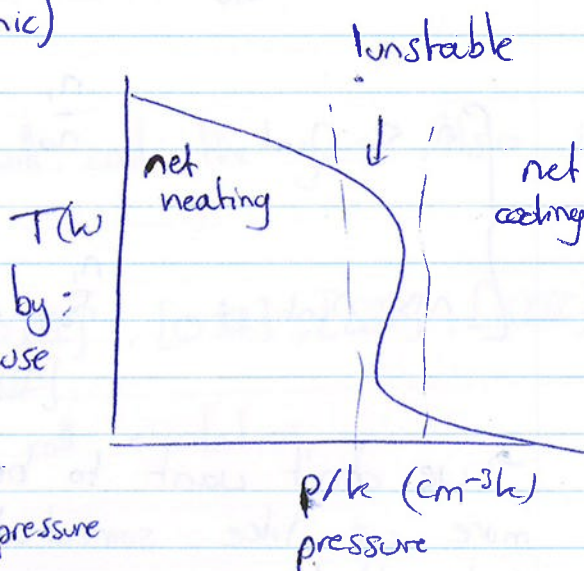 nic)
unstable
net
neating
net
cooling
T(k)
by:
use
p/k (cm⁻³k)
pressure
pressure